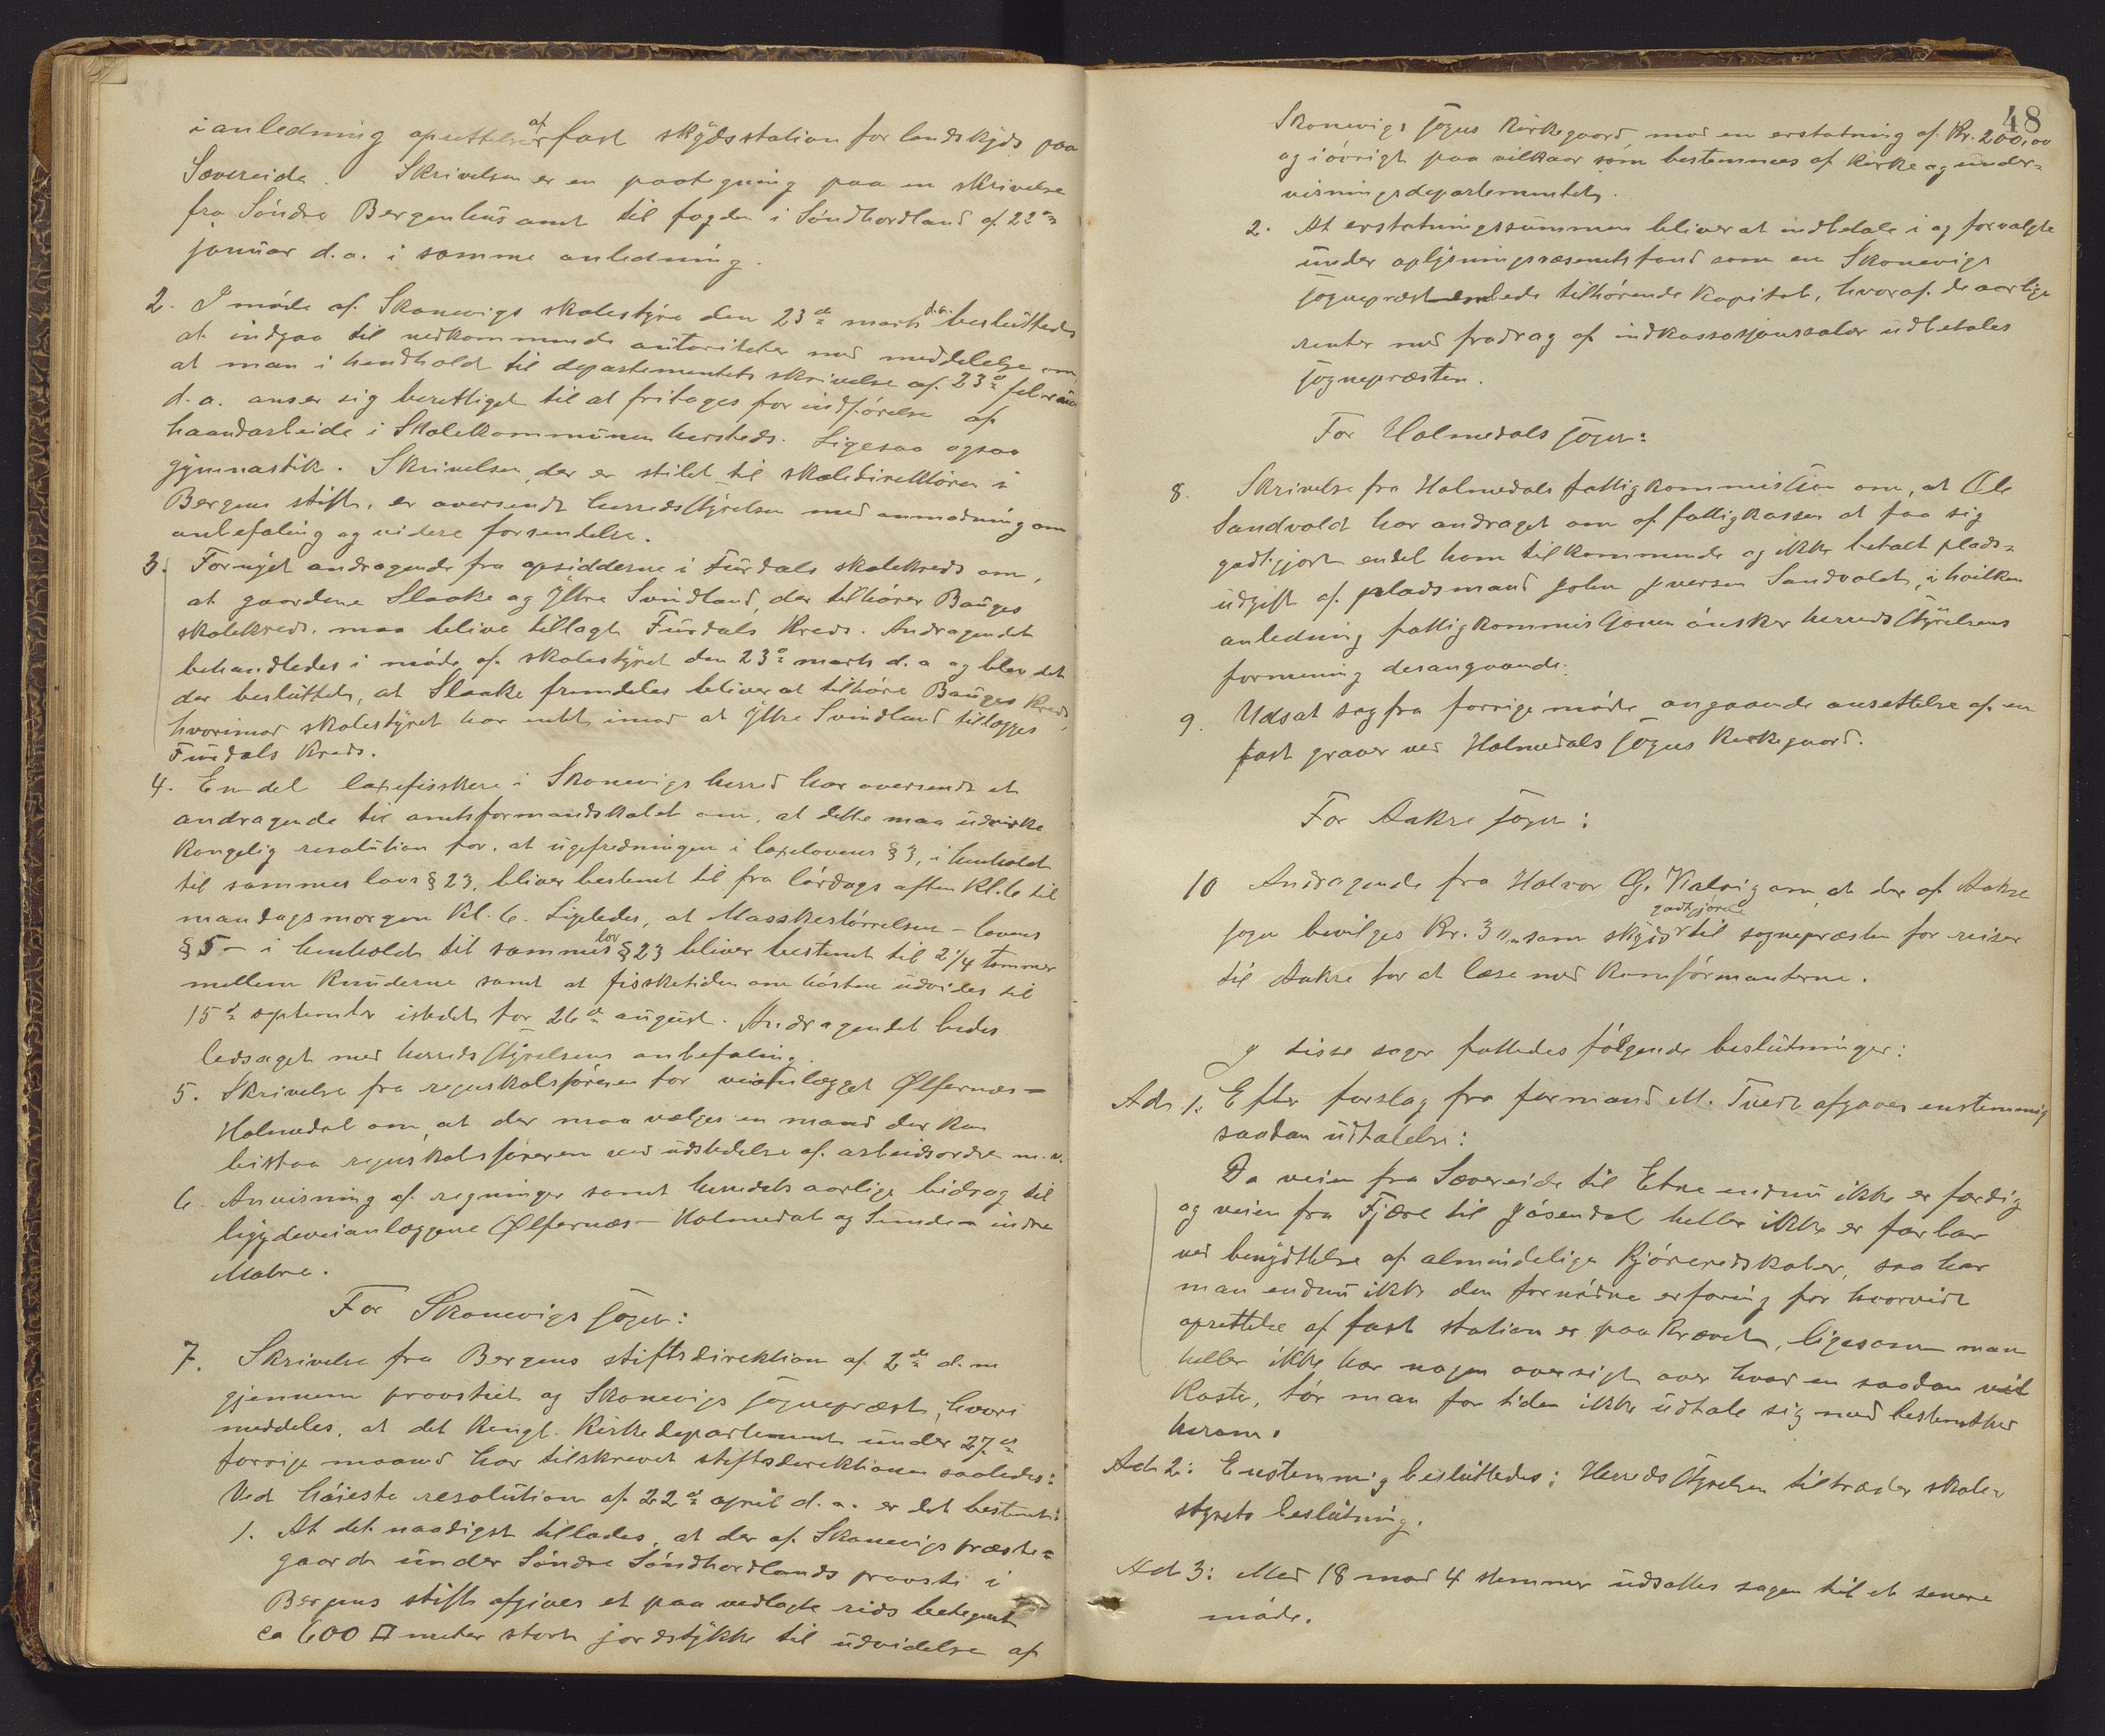 i anledning oprettelse af fast skydsstation for landskyds paa
Sævereide. Skrivelsen er en paategning paa en skrivelse
fra Söndre Bergenhus amt til fogden i Söndhordland af 22de
januar d.a. i samme anledning.
2. I möde af Skonevigs skolestyre den 23de marts d.a. besluttedes
at indgaa til vedkommende autoriteter med meddelelse om,
at man i hendhold til departementets skrivelse af 23de februar
d.a. anser sig berettiget til at fritages for indförelse af
haandarbeide i Skolekommunen hersteds. Ligesaa ogsaa
gymnastik. Skrivelsen, der er stilet til skoledirektören i
Bergens stift, er oversendt herredsstyrelsen med anmodning om
anbefaling og videre forsendelse.
3. Fornyet andragende fra opsidderne i Furdals skolekreds om,
at gaardene Slaake og Ytre Svindland, der tilhörer Bauges
skolekreds, maa blive tillagt Furdals kreds. Andragendet
behandledes i möde af skolestyret den 23de marts d.a og blev det
der besluttet, at Slaake fremdeles bliver at tilhöre Bauges kreds,
hvorimod skolestyret har intet imod at Ytre Svindland tillægges
Furdals kreds.
4. En del laxefiskere i Skonevigs herred har oversendt et
andragende til amtsformandskabet om, at dette maa udvirke
kongelig resolution for, at ugefredningen i laxelovens § 3, i henhold
til sammes lovs § 23, bliver bestemt til fra lördags aften kl. 6 til
mandags morgen kl. 6. Ligeledes, at Maskestörrelsen – lovens
§ 5 – i henhold til sammes lov § 23 bliver bestemt til 2 1/4 tommer
mellem knuderne samt at fisketiden om hösten udvides til
15de september istedet for 26de august. Andragendet bedes
ledsaget med herredsstyrelsens anbefaling.
5. Skrivelse fra regnskabsföreren for veianlægget Ølfernæs =
Holmedal om, at der maa vælges en mand der kan
bistaa regnskabsföreren ved udstedelse af arbeidsordre m.v.
6. Anvisning af regninger samt herredets aarlige bidrag til
bygdeveianlæggene Ølfernæs – Holmedal og Sunde – indre
Matre.
For Skonevigs sogn:
7. Skrivelse fra Bergens stiftsdirektion af 2de d.m
gjennem provstiet og Skonevigs sognepræst, hvori
meddeles, at det kongl. Kirkedepartement under 27de
forrige maaned har tilskrevet stiftsdirektionen saaledes:
Ved höieste resolution af 22de april d.a. er det bestemt:
1. At det naadigst tillades, at der af Skonevigs præste=
gaard under Söndre Söndhordlands provsti i
Bergens stift afgives et paa vedlagte rids betegnet
ca 600 □ meter stort jordstykke til udvidelse af
48
Skonevigs sogns kirkegaard mod en erstatning af Kr. 200,00
og iövrigt paa vilkaar som bestemmes af Kirke og under=
visningsdepartementet.
2. At erstatningssummen bliver at indbetale i og forvalte
under oplysningsvæsenets fond som en Skonevigs
sognepræstembede tilhörende kapital, hvoraf de aarlige
renter med fradrag af indkassasjonssalær udbetales
sognepræsten.
For Holmedals sogn:
8. Skrivelse fra Holmedals fattigkommission om, at Ole
Sandvold har andraget om af fattigkassen at faa sig
godtgjort endel ham tilkommende og ikke betalt plads=
udgift af pladsmand John Iversen Sandvold, i hvilken
anledning fattigkommissionen önsker herredsstyrelsens
formening desangaaende.
9. Udsat sag fra forrige möde angaaende ansettelse af en
fast graver ved Holmedals sogns kirkegaard.
For Aakre sogn:
10 Andragende fra Halvor G. Kalvig om, at der af Aakre
sogn bevilges Kr. 30,- som skydsgodtgjörelse til sognepræsten for reiser
til Aakre for at læse med konfirmanterne.
I disse sager fattedes fölgende beslutninger:
Ad 1. Efter forslag fra formand M. Tvedt afgaves enstemmig
saadan udtalelse:
Da veien fra Sævereide til Etne endnu ikke er færdig
og veien fra Fjære til Jösendal heller ikke er farbar
ved benyttelse af almindelige kjöreredskaber, saa har
man endnu ikke den fornödne erfaring for hvorvidt
oprettelse af fast station er paakrævet, ligesom man
heller ikke har nogen oversigt over hvad en saadan vil
koste, tör man for tiden ikke udtale sig med bestemthed
herom.
Ad 2: Enstemmig besluttedes: Herredsstyrelsen tiltræder skole=
styrets beslutning.
Ad 3: Med 18 mod 4 stemmer udsattes sagen til et senere
möde.